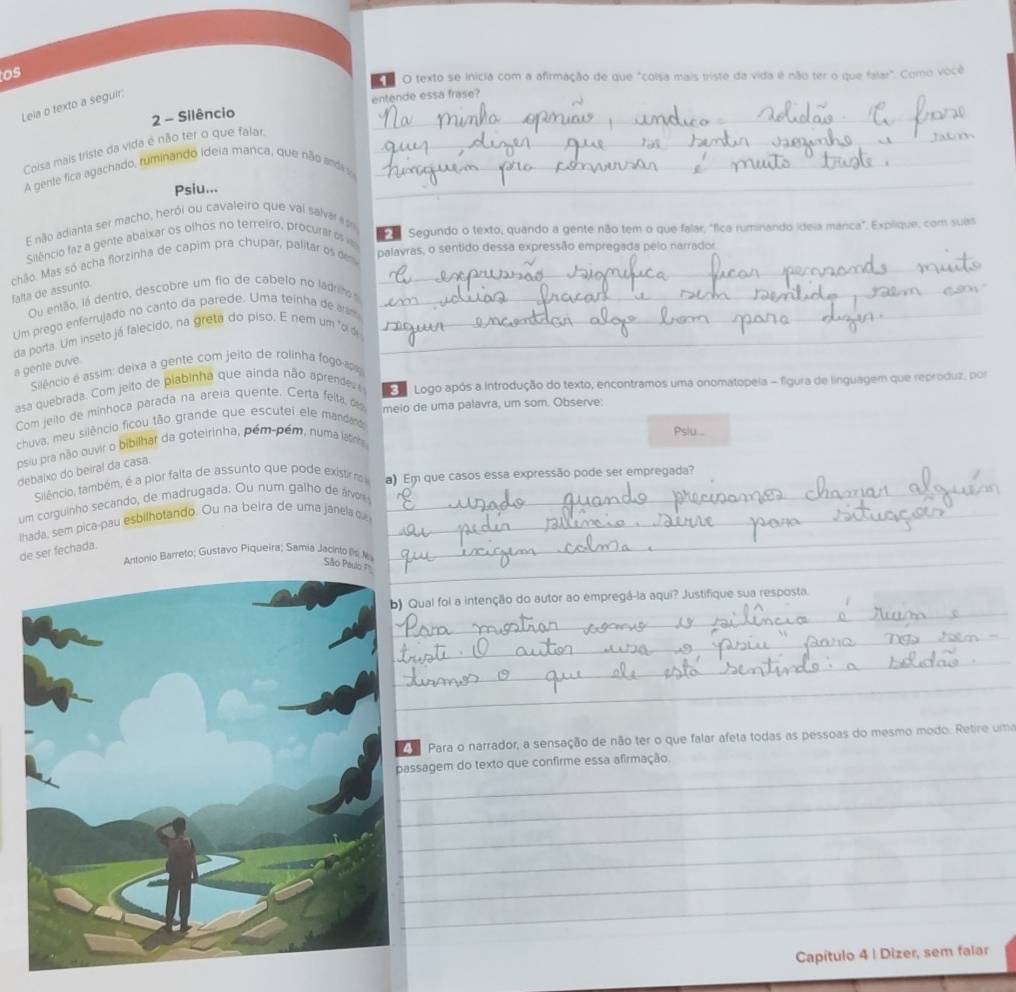 tos
Leia o texto a seguir:
2 - Silêncio
Coisa mais triste da vida é não ter o que falar.
A gente fica agachado, ruminando ideia manca, que não anda
Psiu...
E não adianta ser macho, herói ou cavaleiro que vai salvar a
Silêncio faz a gente abaixar os olhos no terreiro, procurar os
chão. Mas só acha florzinha de capim pra chupar, palitar os
falta de assunto.
Ou então, lá dentro, descobre um fio de cabelo no ladrilho
Um prego enferrujado no canto da parede. Uma teinha de
da porta. Um inseto já falecido, na greta do piso. E nem um
a gente ouve.
Silêncio é assim: deixa a gente com jeito de rolinha fogo-apagou
asa quebrada. Com jeito de piabinha que ainda não aprendeu
Com jeito de minhoca parada na areia quente. Certa feita,
chuva, meu silêncio ficou tão grande que escutei ele mandando
psiu pra não ouvir o bibilhar da goteirinha, pém-pém, numa latinha
debaixo do beiral da casa.
Silêncio, também, é a pior falta de assunto que pode existir
um corguinho secando, de madrugada. Ou num galho de árvore
lhada, sem pica-pau esbilhotando. Ou na beira de uma janela
de ser fechada.
Antonio Barreto; Gustavo Piqueira; Samia Jacinto
São Paulo
1 O texto se inicia com a afirmação de que "coisa mais triste da vida é não ter o que falar". Como você
entende essa frase?
na minha opnião, indica solidão. a frase
quer, dizer que se sentir sozinho e sem
ninguém pra conversar é muito triste.
2 Segundo o texto, quando a gente não tem o que falar, "fica ruminando ideia manca". Explique, com suas
palavras, o sentido dessa expressão empregada pelo narrador.
a expressão significa ficar pensando muito
em ideias fracas e sem sentido, sem con-
seguir encontrar algo bom para dizer.
3 Logo após a introdução do texto, encontramos uma onomatopeia – figura de linguagem que reproduz, por
meio de uma palavra, um som. Observe:
Psiu...
a) Em que casos essa expressão pode ser empregada?
é usado quando precisamos chamar alguém
ou pedir silêncio. serve para situações
que exigem calma.
b) Qual foi a intenção do autor ao empregá-la aqui? Justifique sua resposta.
Para mostrar como o silêncio é ruim e
triste. O autor usa o "psiu" para nos sen-
tirmos o que ele está sentindo: a solidão.
4 Para o narrador, a sensação de não ter o que falar afeta todas as pessoas do mesmo modo. Retire uma
passagem do texto que confirme essa afirmação.
Capítulo 4 | Dizer, sem falar